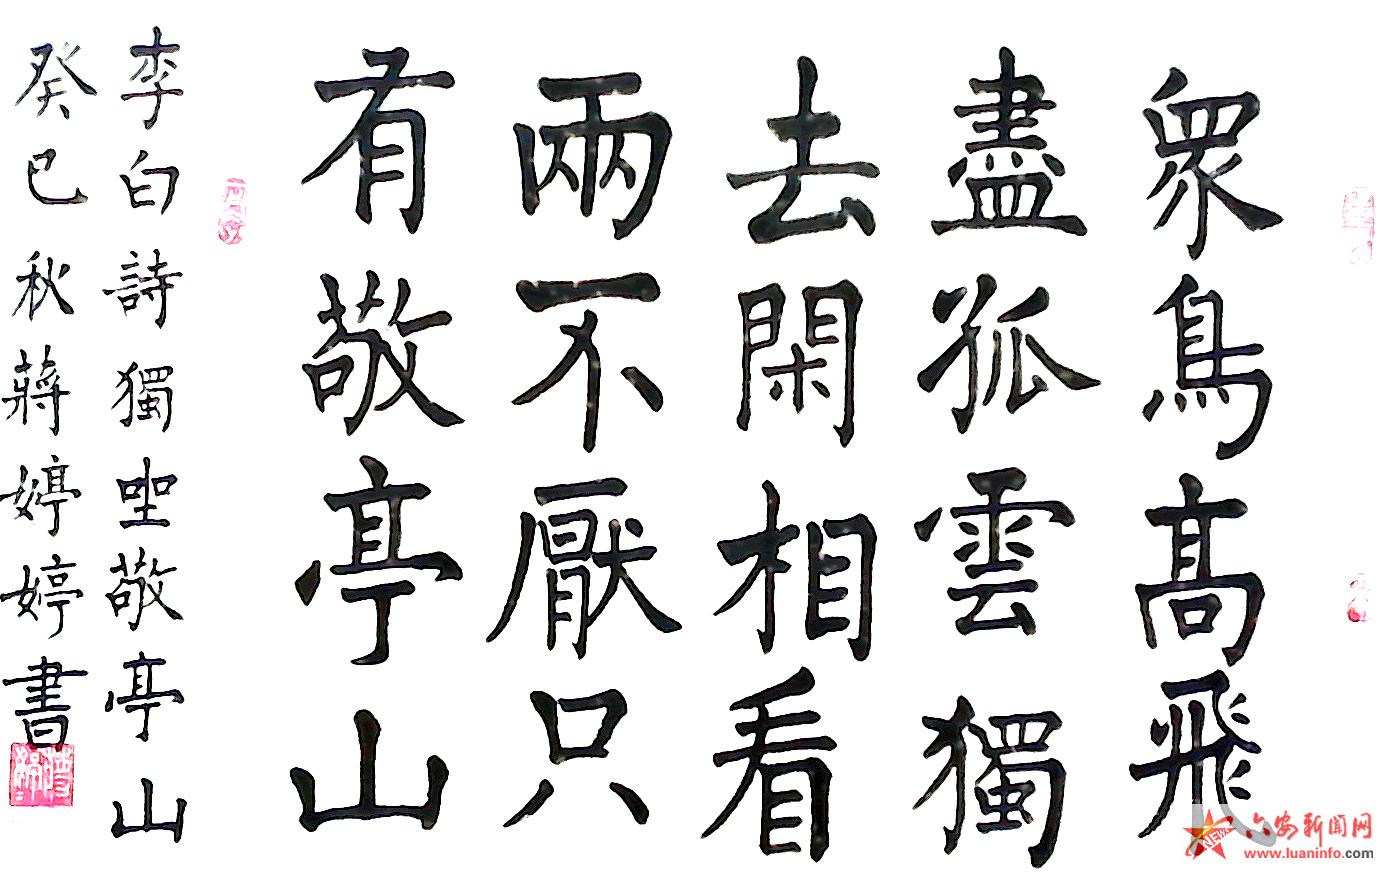 衆鳥髙飛
盡孤雲獨
去閑相看
兩不厭只
有敬亭山
李白詩獨坐敬亭山
癸巳秋蔣婷婷書
六安新闻网
www.luaninfo.com